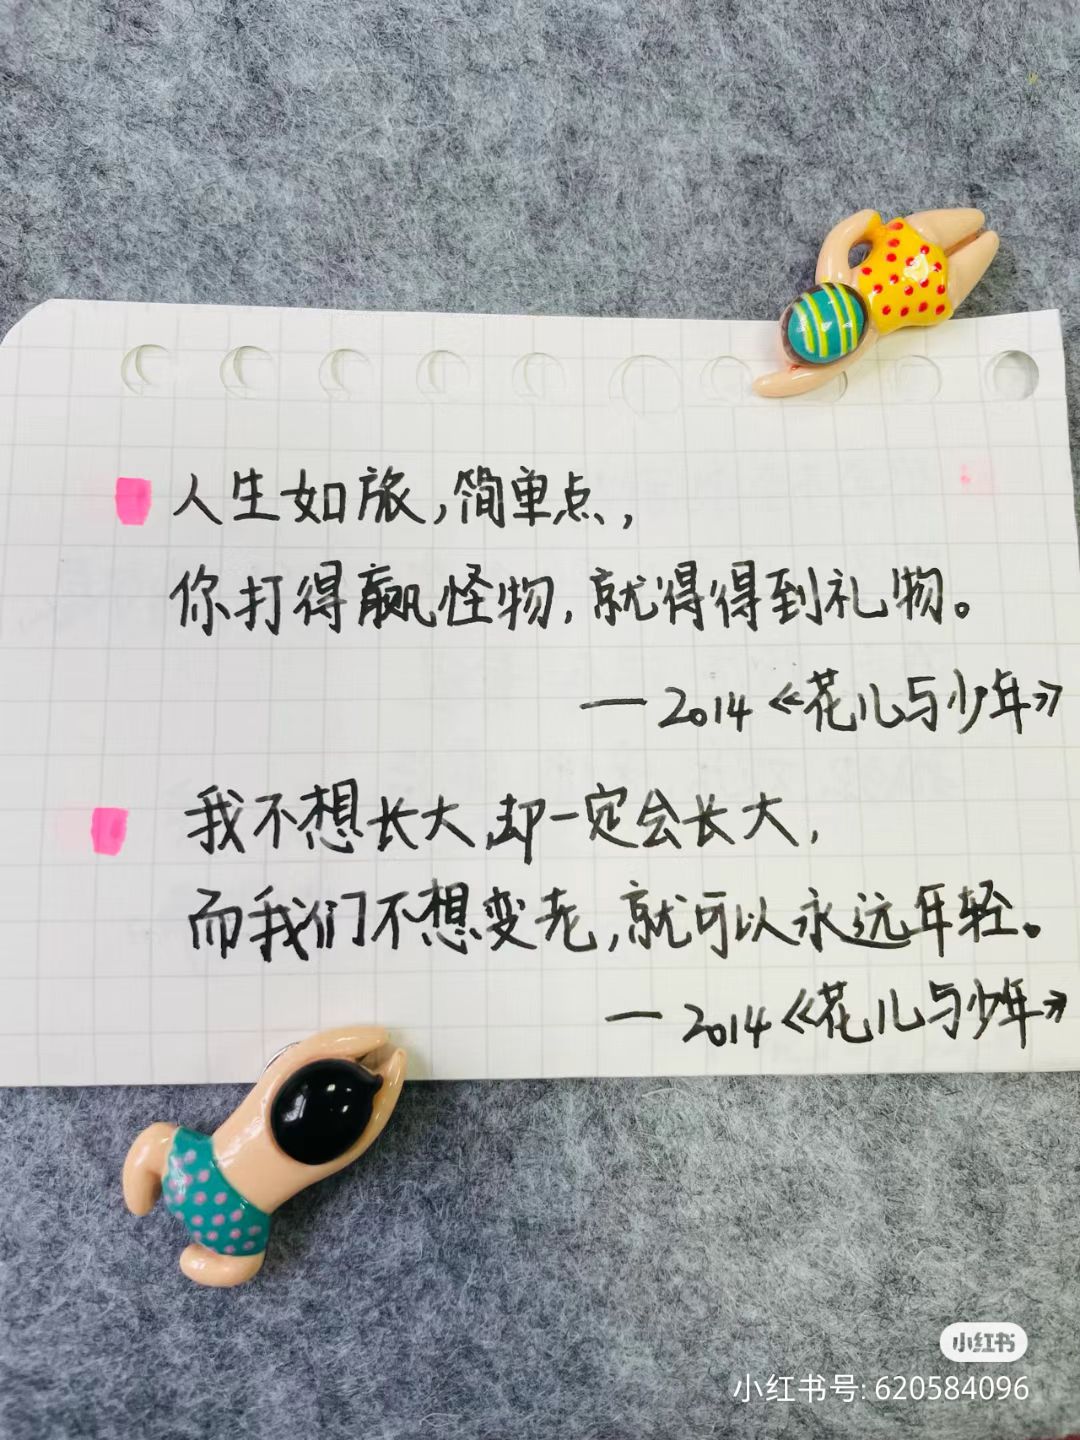 人生如旅,简单点,
你打得赢怪物,就得得到礼物。
— 2014《花儿与少年》
我不想长大,却一定会长大,
而我们不想变老,就可以永远年轻。
— 2014《花儿与少年》
小红书
小红书号: 620584096